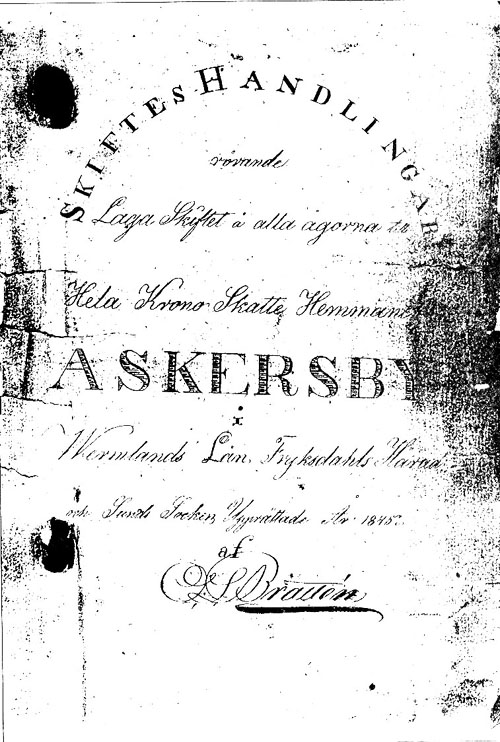 SKIFTES HANDLINGAR
rörande
Laga Skiftet å alla ägorna
Hela Krono Skatte Hemmanet
ASKERSBY
i
Wermlands Län Fryksdahls Härad
och Sunds Socken, Upprättade År 1845.
af